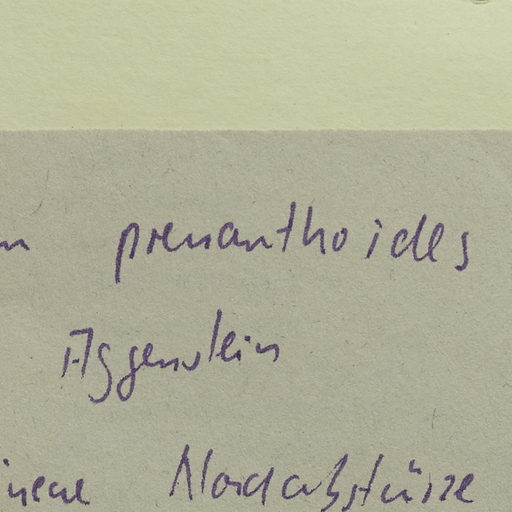 m prenanthoides
Aggenstein
Nordabstürze